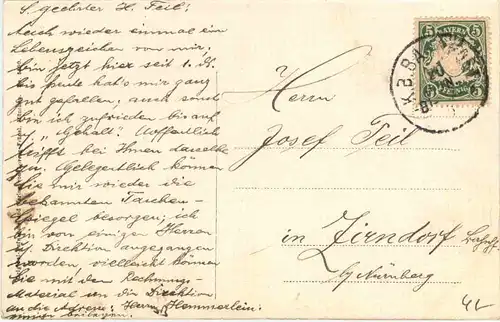 S. geehrter H. Teil!
Auch wieder einmal ein
Lebenszeichen von mir;
bin jetzt hier seit 1. ds.
bis heute hat's mir ganz
gut gefallen, auch sonst
bin ich zufrieden bis auf
„Gehalt". Hoffentlich
trifft bei Ihnen dasselbe
zu. Gelegentlich können
Sie mir wieder die
bekannten Taschen-
spiegel besorgen; ich
bin von einigen Herren
d. Direktion angegangen
worden vielleicht können
Sie mit den Rechnungs-
Material an die Direktion
an die Adresse: Herrn Hemmerlein.
BAYERN
5 5
5 5
PFENNIG
Herrn
Josef Teil
in Zirndorf
b/ Nürnberg